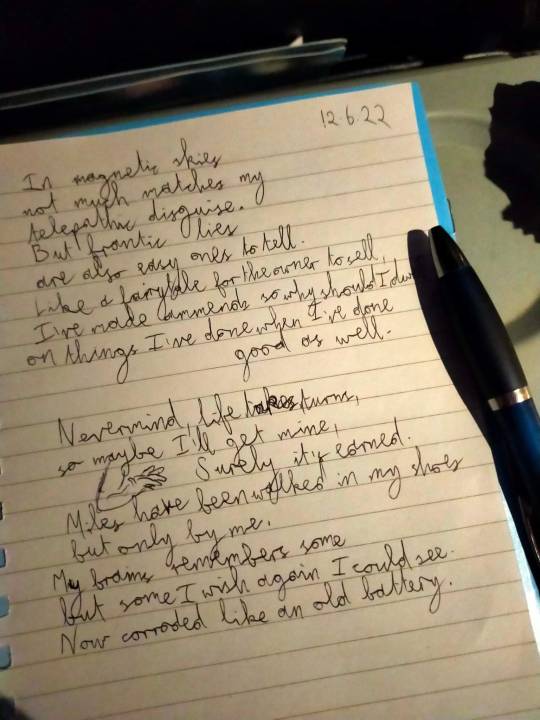 12.6.22
In magnetic skies
not much matches my
telepathic disguise.
But frantic lies
are also easy ones to tell.
Like a fairytale for the owner to sell,
I've made ammends so why should I
on things I've done when I've done
good as well.
Nevermind, life takes turns,
so maybe I'll get mine,
Surely it's earned.
Miles have been walked in my shoes
but only by me.
My brains remembers some
but some I wish again I could see.
Now corroded like an old battery.